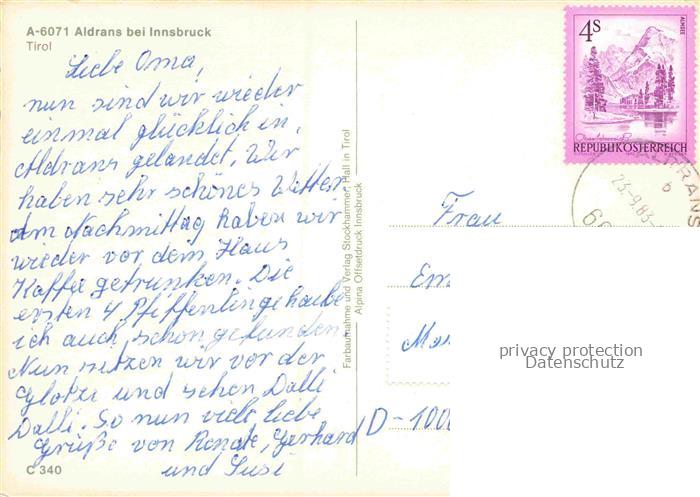 A-6071 Aldrans bei Innsbruck
Tirol
Liebe Oma,
nun sind wir wieder
einmal glücklich in
Aldrans gelandet. Wir
haben sehr schönes Wetter
Am Nachmittag haben wir
wieder vor dem Haus
Kaffee getrunken. Die
ersten 4 Pfifferlinge habe
ich auch schon gefunden.
Nun sitzen wir vor der
Glotze und sehen Dalli
Dalli. So nun viele liebe
Grüße von Renate, Gerhard
und Susi
C 340
Farbaufnahme und Verlag Stockhammer, Hall in Tirol
Alpina Offsetdruck Innsbruck
4S
ALMSEE
REPUBLIK ÖSTERREICH
23.-9.83
Frau
D-1000
privacy protection
Datenschutz